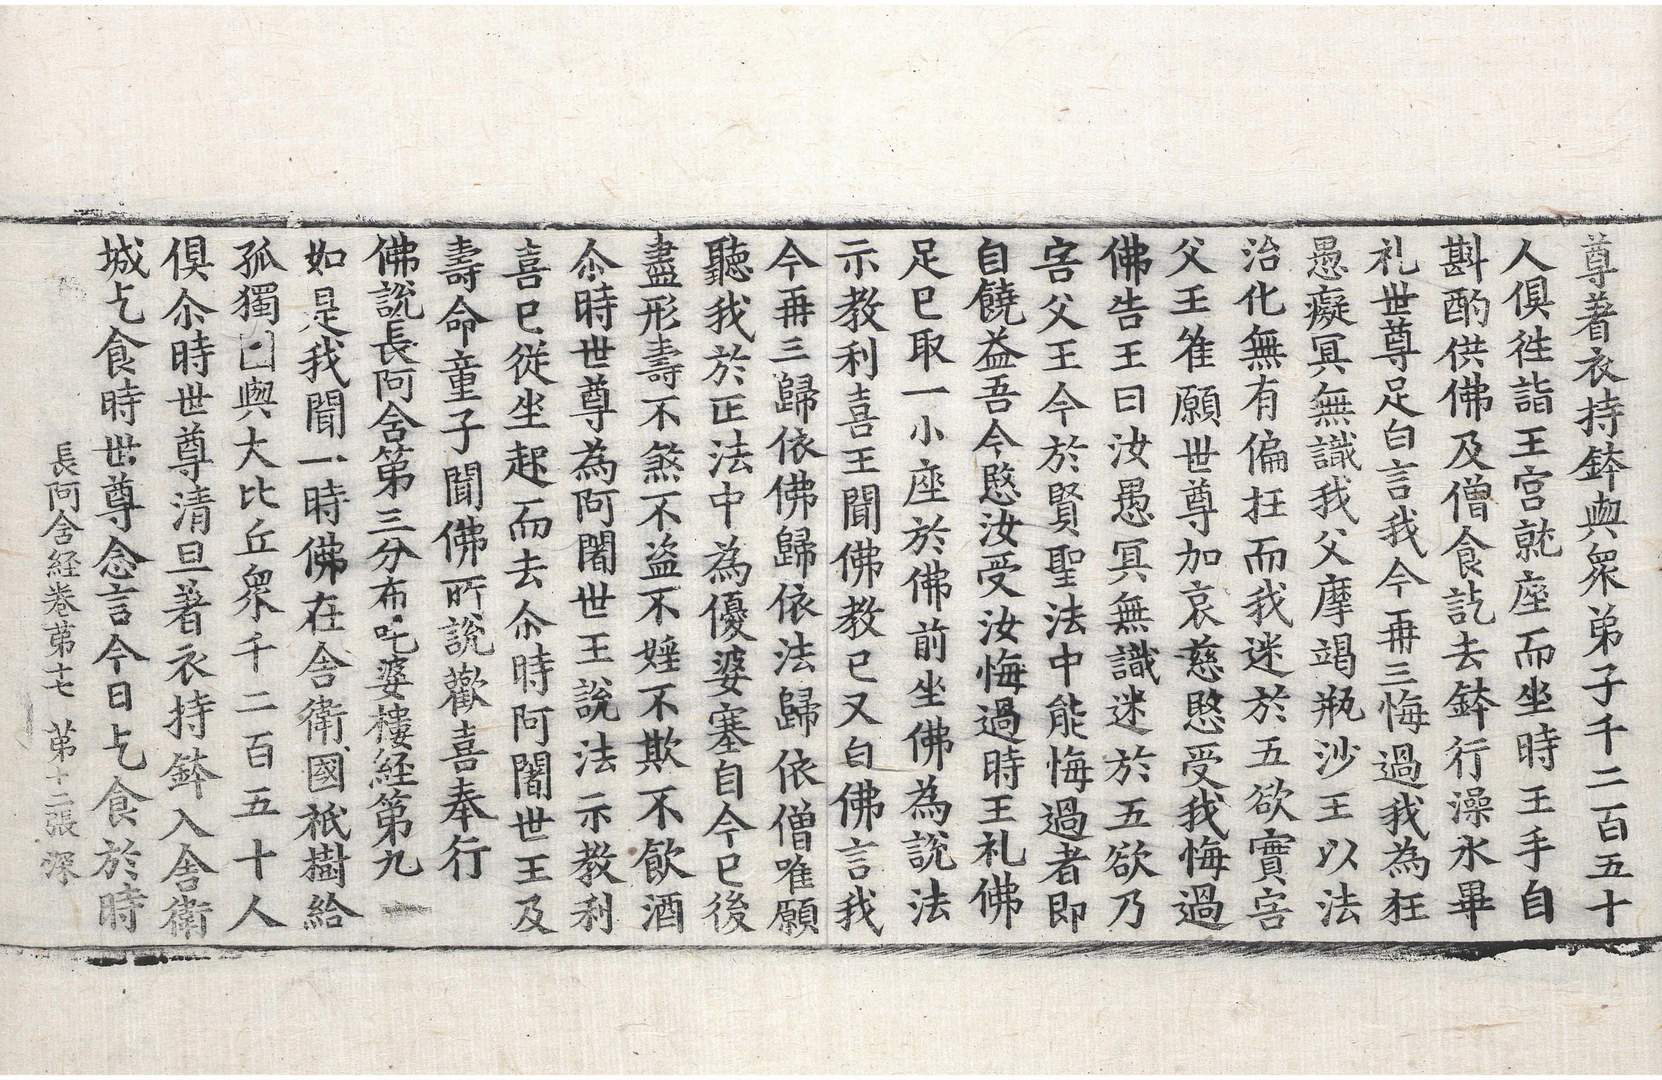 尊著衣持鉢與衆弟子千二百五十
人俱往詣王宫就座而坐時王手自
斟酌供佛及僧食訖去鉢行澡水畢
礼世尊足白言我今再三悔過我為狂
愚癡冥無識我父摩竭瓶沙王以法
治化無有偏抂而我迷於五欲實害
父王唯願世尊加哀慈愍受我悔過
佛告王曰汝愚冥無識迷於五欲乃
害父王今於賢聖法中能悔過者即
自饒益吾今愍汝受汝悔過時王礼佛
足已取一小座於佛前坐佛為說法
示教利喜王聞佛教已又白佛言我
今再三歸依佛歸依法歸依僧唯願
聽我於正法中為優婆塞自今已後
盡形壽不煞不盗不婬不欺不飲酒
尒時世尊為阿闍世王說法示教利
喜已從坐起而去尒時阿闍世王及
壽命童子聞佛所說歡喜奉行
佛說長阿含第三分布吒婆樓経第九
如是我聞一時佛在舍衛國祇樹給
孤獨與大比丘衆千二百五十人
俱尒時世尊清旦著衣持鉢入舍衛
城乞食時世尊念言今日乞食於時
長阿含経卷第十七 第十二張 深